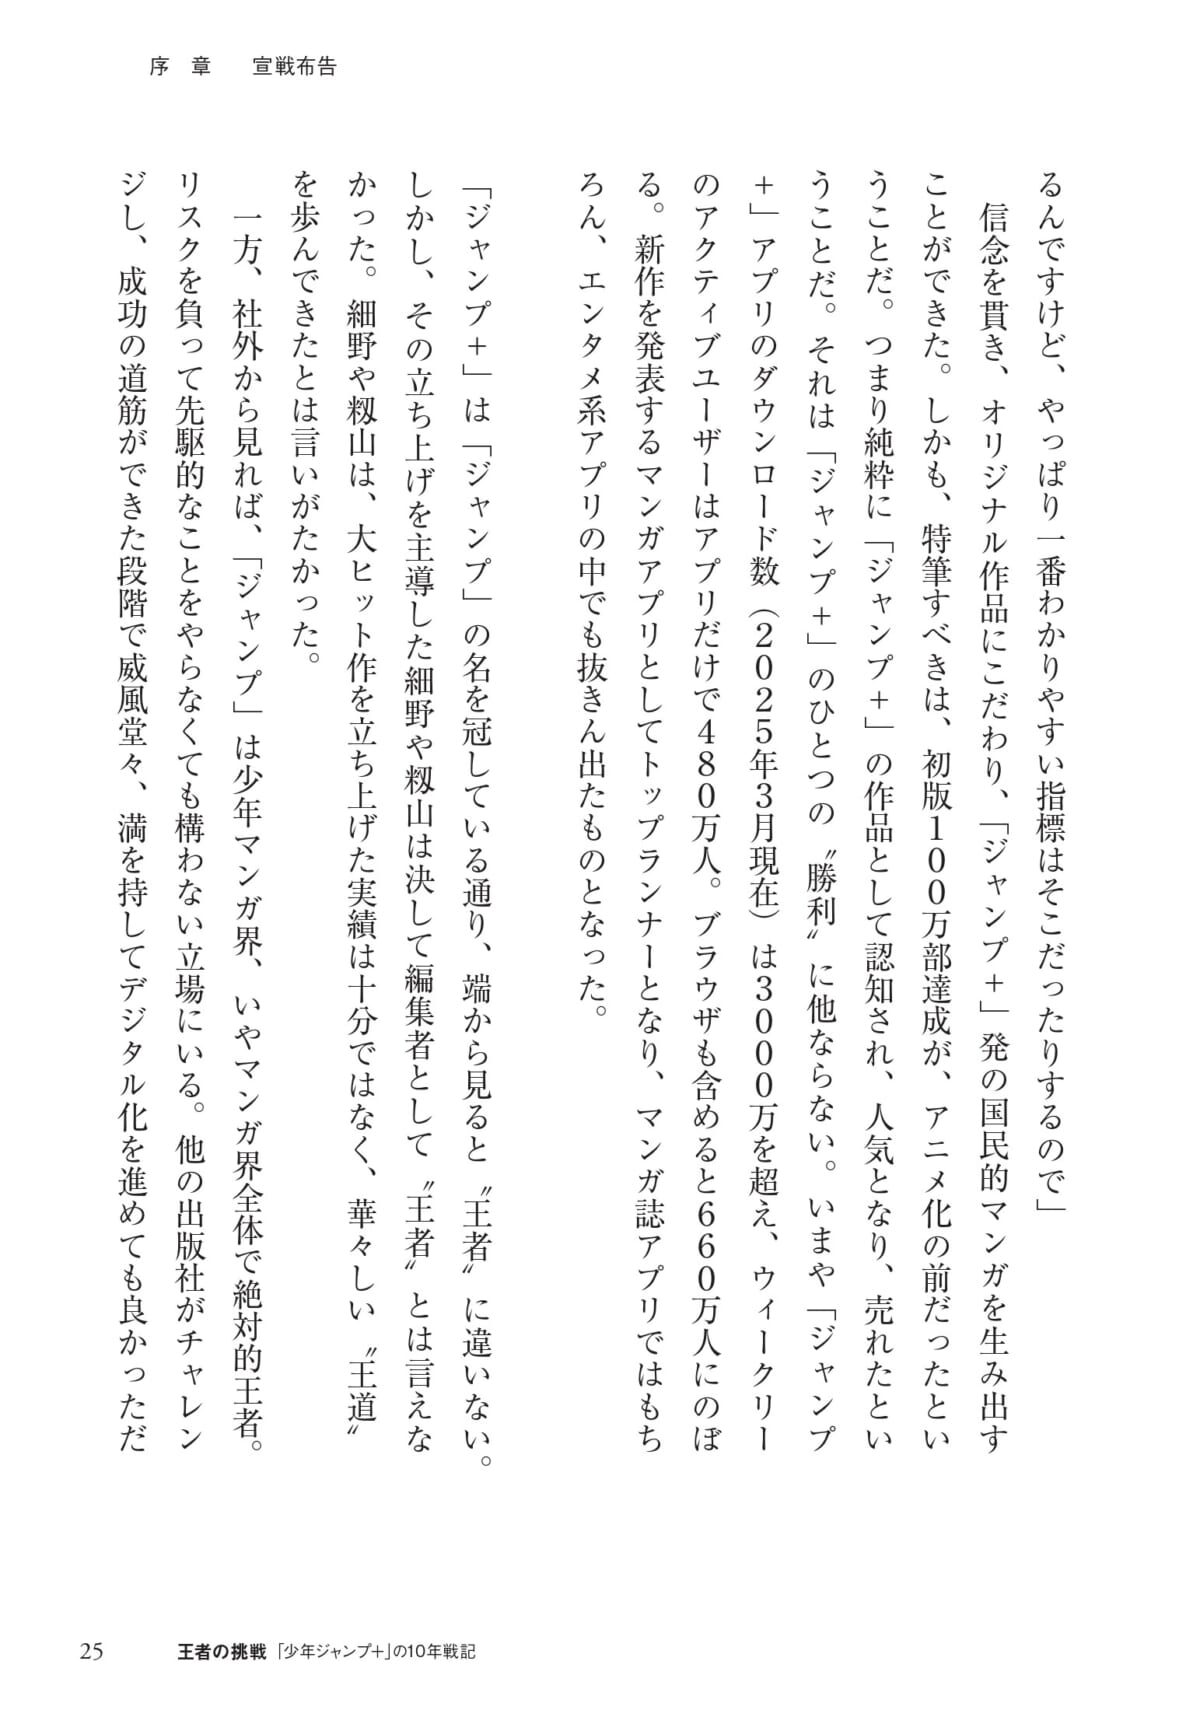 序　章　　宣戦布告
るんですけど、やっぱり一番わかりやすい指標はそこだったりするので」
　信念を貫き、オリジナル作品にこだわり、「ジャンプ＋」発の国民的マンガを生み出す
ことができた。しかも、特筆すべきは、初版１００万部達成が、アニメ化の前だったとい
うことだ。つまり純粋に「ジャンプ＋」の作品として認知され、人気となり、売れたとい
うことだ。それは「ジャンプ＋」のひとつの〝勝利〟に他ならない。いまや「ジャンプ
＋」アプリのダウンロード数（２０２５年３月現在）は３０００万を超え、ウィークリー
のアクティブユーザーはアプリだけで４８０万人。ブラウザも含めると６６０万人にのぼ
る。新作を発表するマンガアプリとしてトップランナーとなり、マンガ誌アプリではもち
ろん、エンタメ系アプリの中でも抜きん出たものとなった。
「ジャンプ＋」は「ジャンプ」の名を冠している通り、端から見ると〝王者〟に違いない。
しかし、その立ち上げを主導した細野や籾山は決して編集者として〝王者〟とは言えな
かった。細野や籾山は、大ヒット作を立ち上げた実績は十分ではなく、華々しい〝王道〟
を歩んできたとは言いがたかった。
　一方、社外から見れば、「ジャンプ」は少年マンガ界、いやマンガ界全体で絶対的王者。
リスクを負って先駆的なことをやらなくても構わない立場にいる。他の出版社がチャレン
ジし、成功の道筋ができた段階で威風堂々、満を持してデジタル化を進めても良かっただ
25　王者の挑戦　「少年ジャンプ＋」の10年戦記